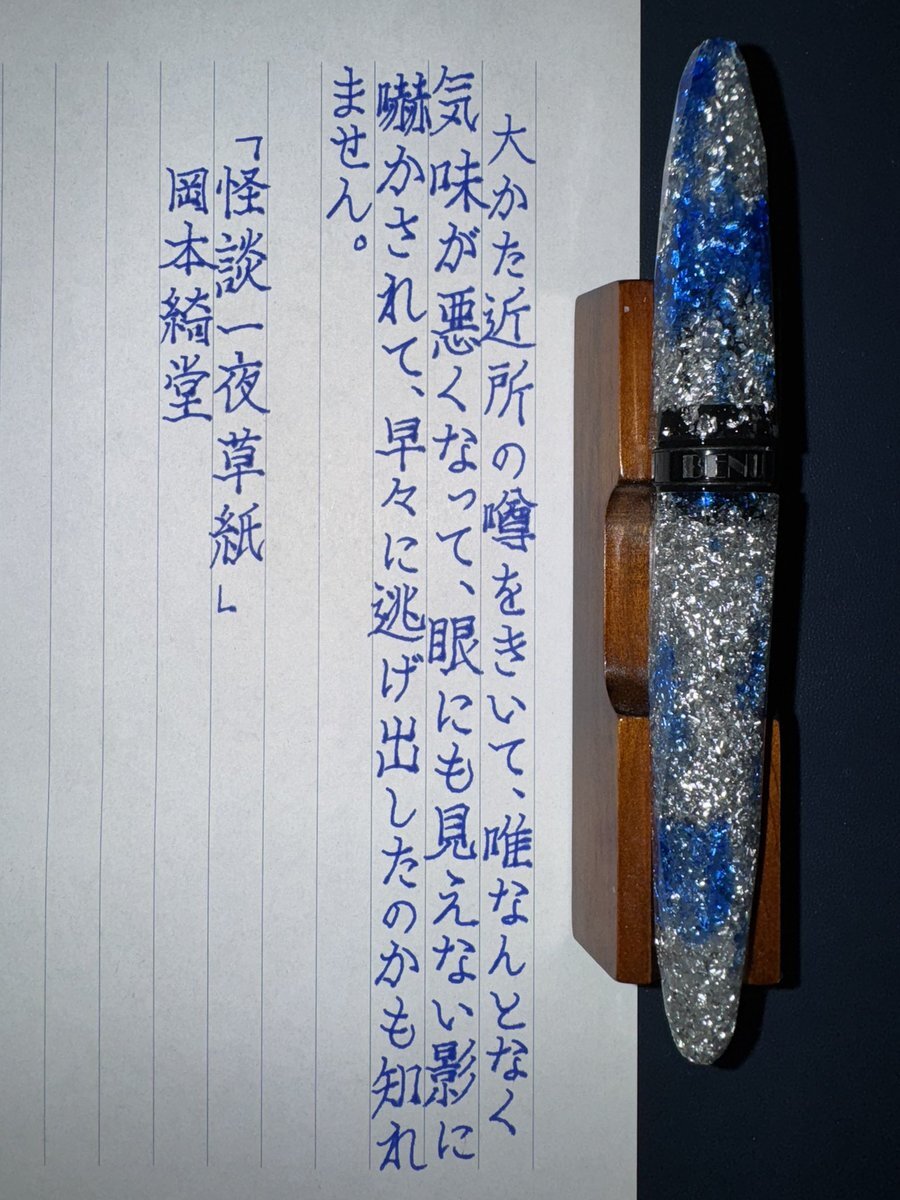 大かた近所の噂をきいて、唯なんとなく
気味が悪くなって、眼にも見えない影に
嚇かされて、早々に逃げ出したのかも知れ
ません。
「怪談一夜草紙」
岡本綺堂
BENU